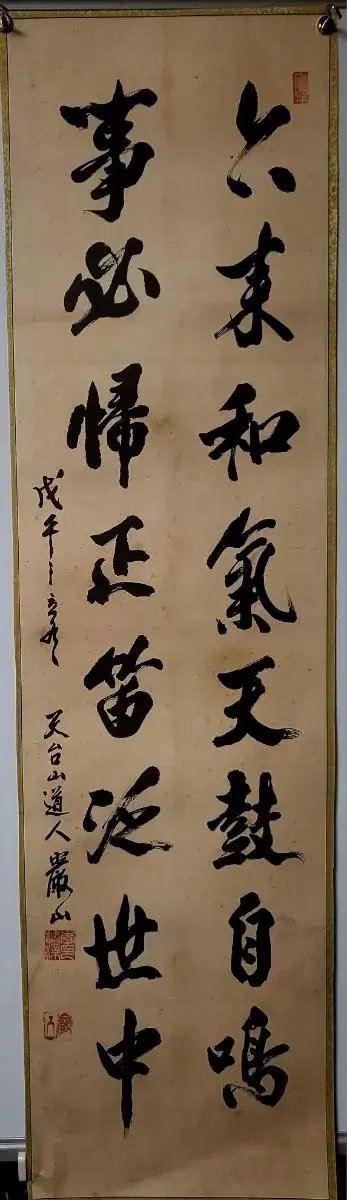 六来和氣天鼓自鳴
事必帰正笛泛世中
戊午之
天台山道人 巖山